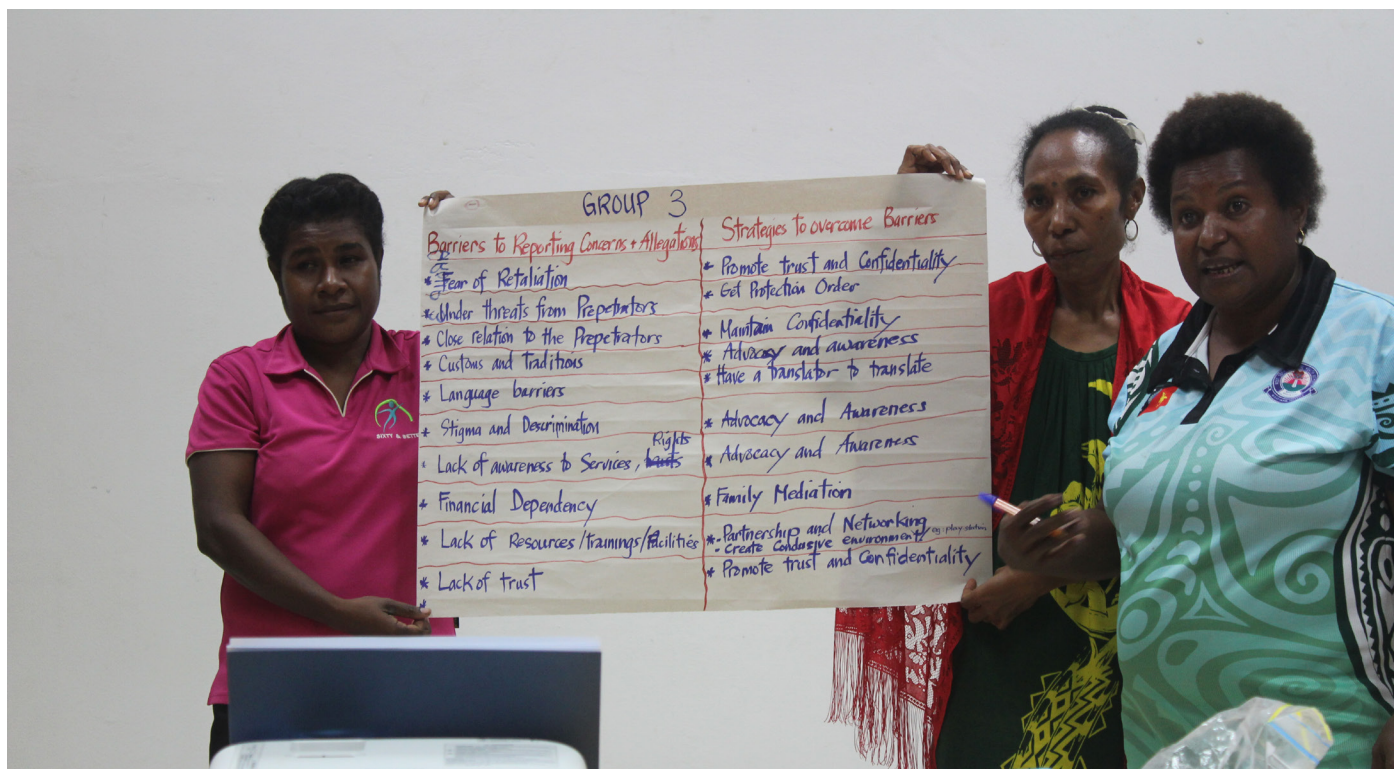 GROUP 3
Barriers to Reporting Concerns + Allegations
* Fear of Retaliation
* Under threats from Prepetrators
* Close relation to the Prepetrators
* Customs and Traditions
* Language barriers
* Stigma and Descrimination
Rights
* Lack of awareness to Services,
* Financial Dependency
* Lack of Resources/trainings/facilities
* Lack of trust
*
Strategies to overcome Barriers
* Promote trust and Confidentiality
* Get Protection Order
* Maintain Confidentiality
* Advocacy and awareness
* Have a translator to translate
* Advocacy and Awareness
* Advocacy and Awareness
* Family Mediation
* - Partnership and Networking
- Create Conducsive environment
* Promote trust and Confidentiality